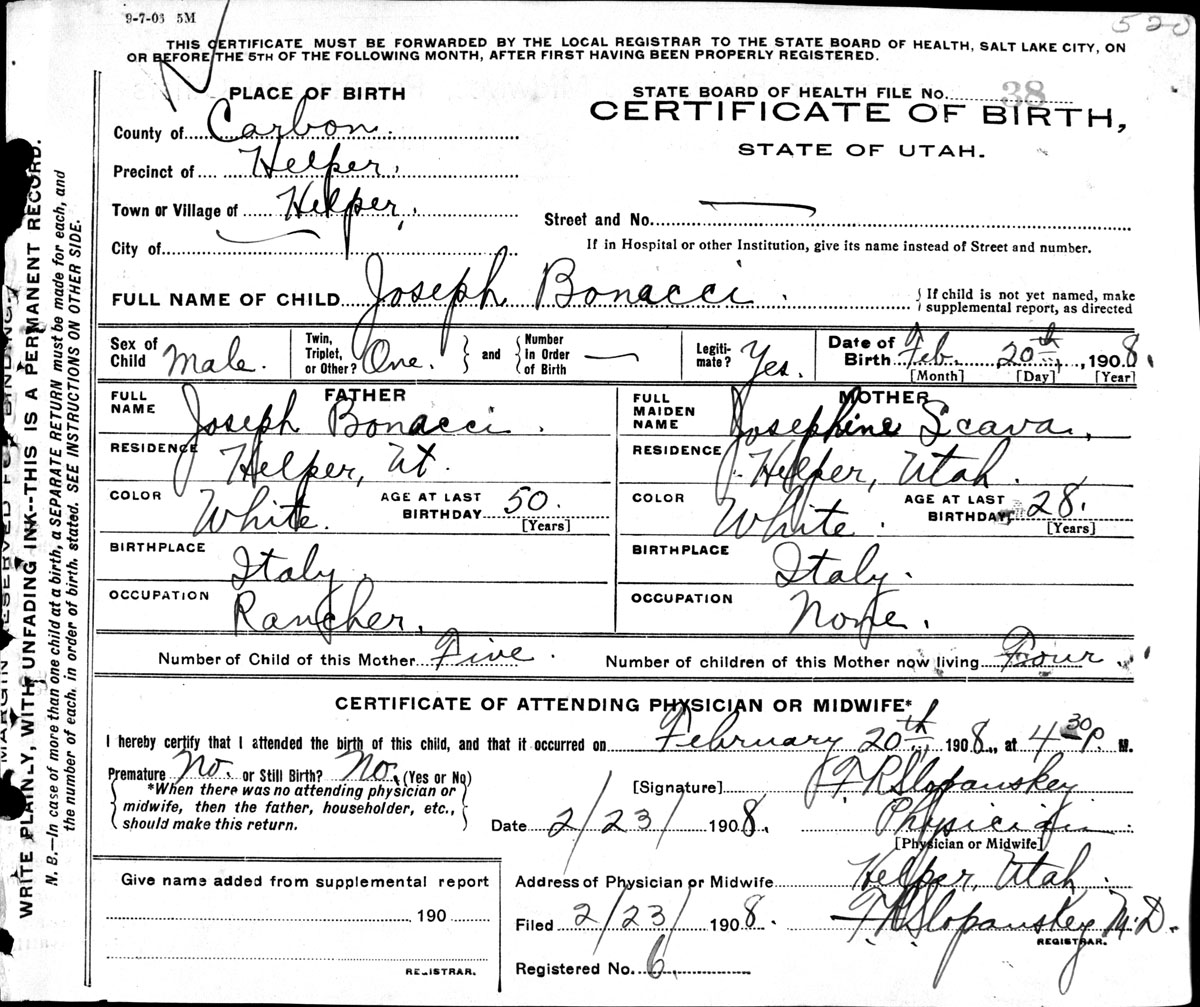 9-7-03 5M
520
THIS CERTIFICATE MUST BE FORWARDED BY THE LOCAL REGISTRAR TO THE STATE BOARD OF HEALTH, SALT LAKE CITY, ON
OR BEFORE THE 5TH OF THE FOLLOWING MONTH, AFTER FIRST HAVING BEEN PROPERLY REGISTERED.
PLACE OF BIRTH
STATE BOARD OF HEALTH FILE NO. 38
CERTIFICATE OF BIRTH,
STATE OF UTAH.
County of Carbon.
Precinct of Helper.
Town or Village of Helper.
Street and No. —
City of —
If in Hospital or other Institution, give its name instead of Street and number.
FULL NAME OF CHILD Joseph Bonacci.
{ If child is not yet named, make
supplemental report, as directed
Sex of Child Male.
Twin, Triplet, or Other? One. } and { Number In Order of Birth —
Legitimate? Yes.
Date of Birth Feb. 20th, 1908.
[Month] [Day] [Year]
FATHER
FULL NAME Joseph Bonacci.
RESIDENCE Helper, Ut.
COLOR White.
AGE AT LAST BIRTHDAY 50. [Years]
BIRTHPLACE Italy.
OCCUPATION Rancher.
MOTHER
FULL MAIDEN NAME Josephine Scava.
RESIDENCE Helper, Utah.
COLOR White.
AGE AT LAST BIRTHDAY 28. [Years]
BIRTHPLACE Italy.
OCCUPATION None.
Number of Child of this Mother Five. Number of children of this Mother now living Four.
CERTIFICATE OF ATTENDING PHYSICIAN OR MIDWIFE*
I hereby certify that I attended the birth of this child, and that it occurred on February 20th, 1908, at 4 30 P. M.
Premature No. or Still Birth? No. (Yes or No)
{ *When there was no attending physician or
midwife, then the father, householder, etc.,
should make this return. }
[Signature] F. R. Slopanskey
Date 2/23/1908.
Physician
[Physician or Midwife]
Address of Physician or Midwife Helper, Utah
Filed 2/23/1908. F. R. Slopanskey M.D.
REGISTRAR.
Registered No. 6.
Give name added from supplemental report
190
REGISTRAR.
MARGIN RESERVED FOR BINDING
WRITE PLAINLY, WITH UNFADING INK--THIS IS A PERMANENT RECORD.
N. B.—In case of more than one child at a birth, a SEPARATE RETURN must be made for each, and
the number of each, in order of birth, stated. SEE INSTRUCTIONS ON OTHER SIDE.